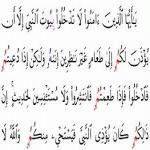 يَٰٓأَيُّهَا ٱلَّذِينَ ءَامَنُوا۟ لَا تَدْخُلُوا۟ بُيُوتَ ٱلنَّبِىِّ إِلَّآ أَن
يُؤْذَنَ لَكُمْ إِلَىٰ طَعَامٍ غَيْرَ نَٰظِرِينَ إِنَىٰهُ وَلَٰكِنْ إِذَا دُعِيتُمْ
فَٱدْخُلُوا۟ فَإِذَا طَعِمْتُمْ فَٱنتَشِرُوا۟ وَلَا مُسْتَـْٔنِسِينَ لِحَدِيثٍ ۚ إِنَّ
ذَٰلِكُمْ كَانَ يُؤْذِى ٱلنَّبِىَّ فَيَسْتَحْىِۦ مِنكُمْ ۖ وَٱللَّهُ لَا